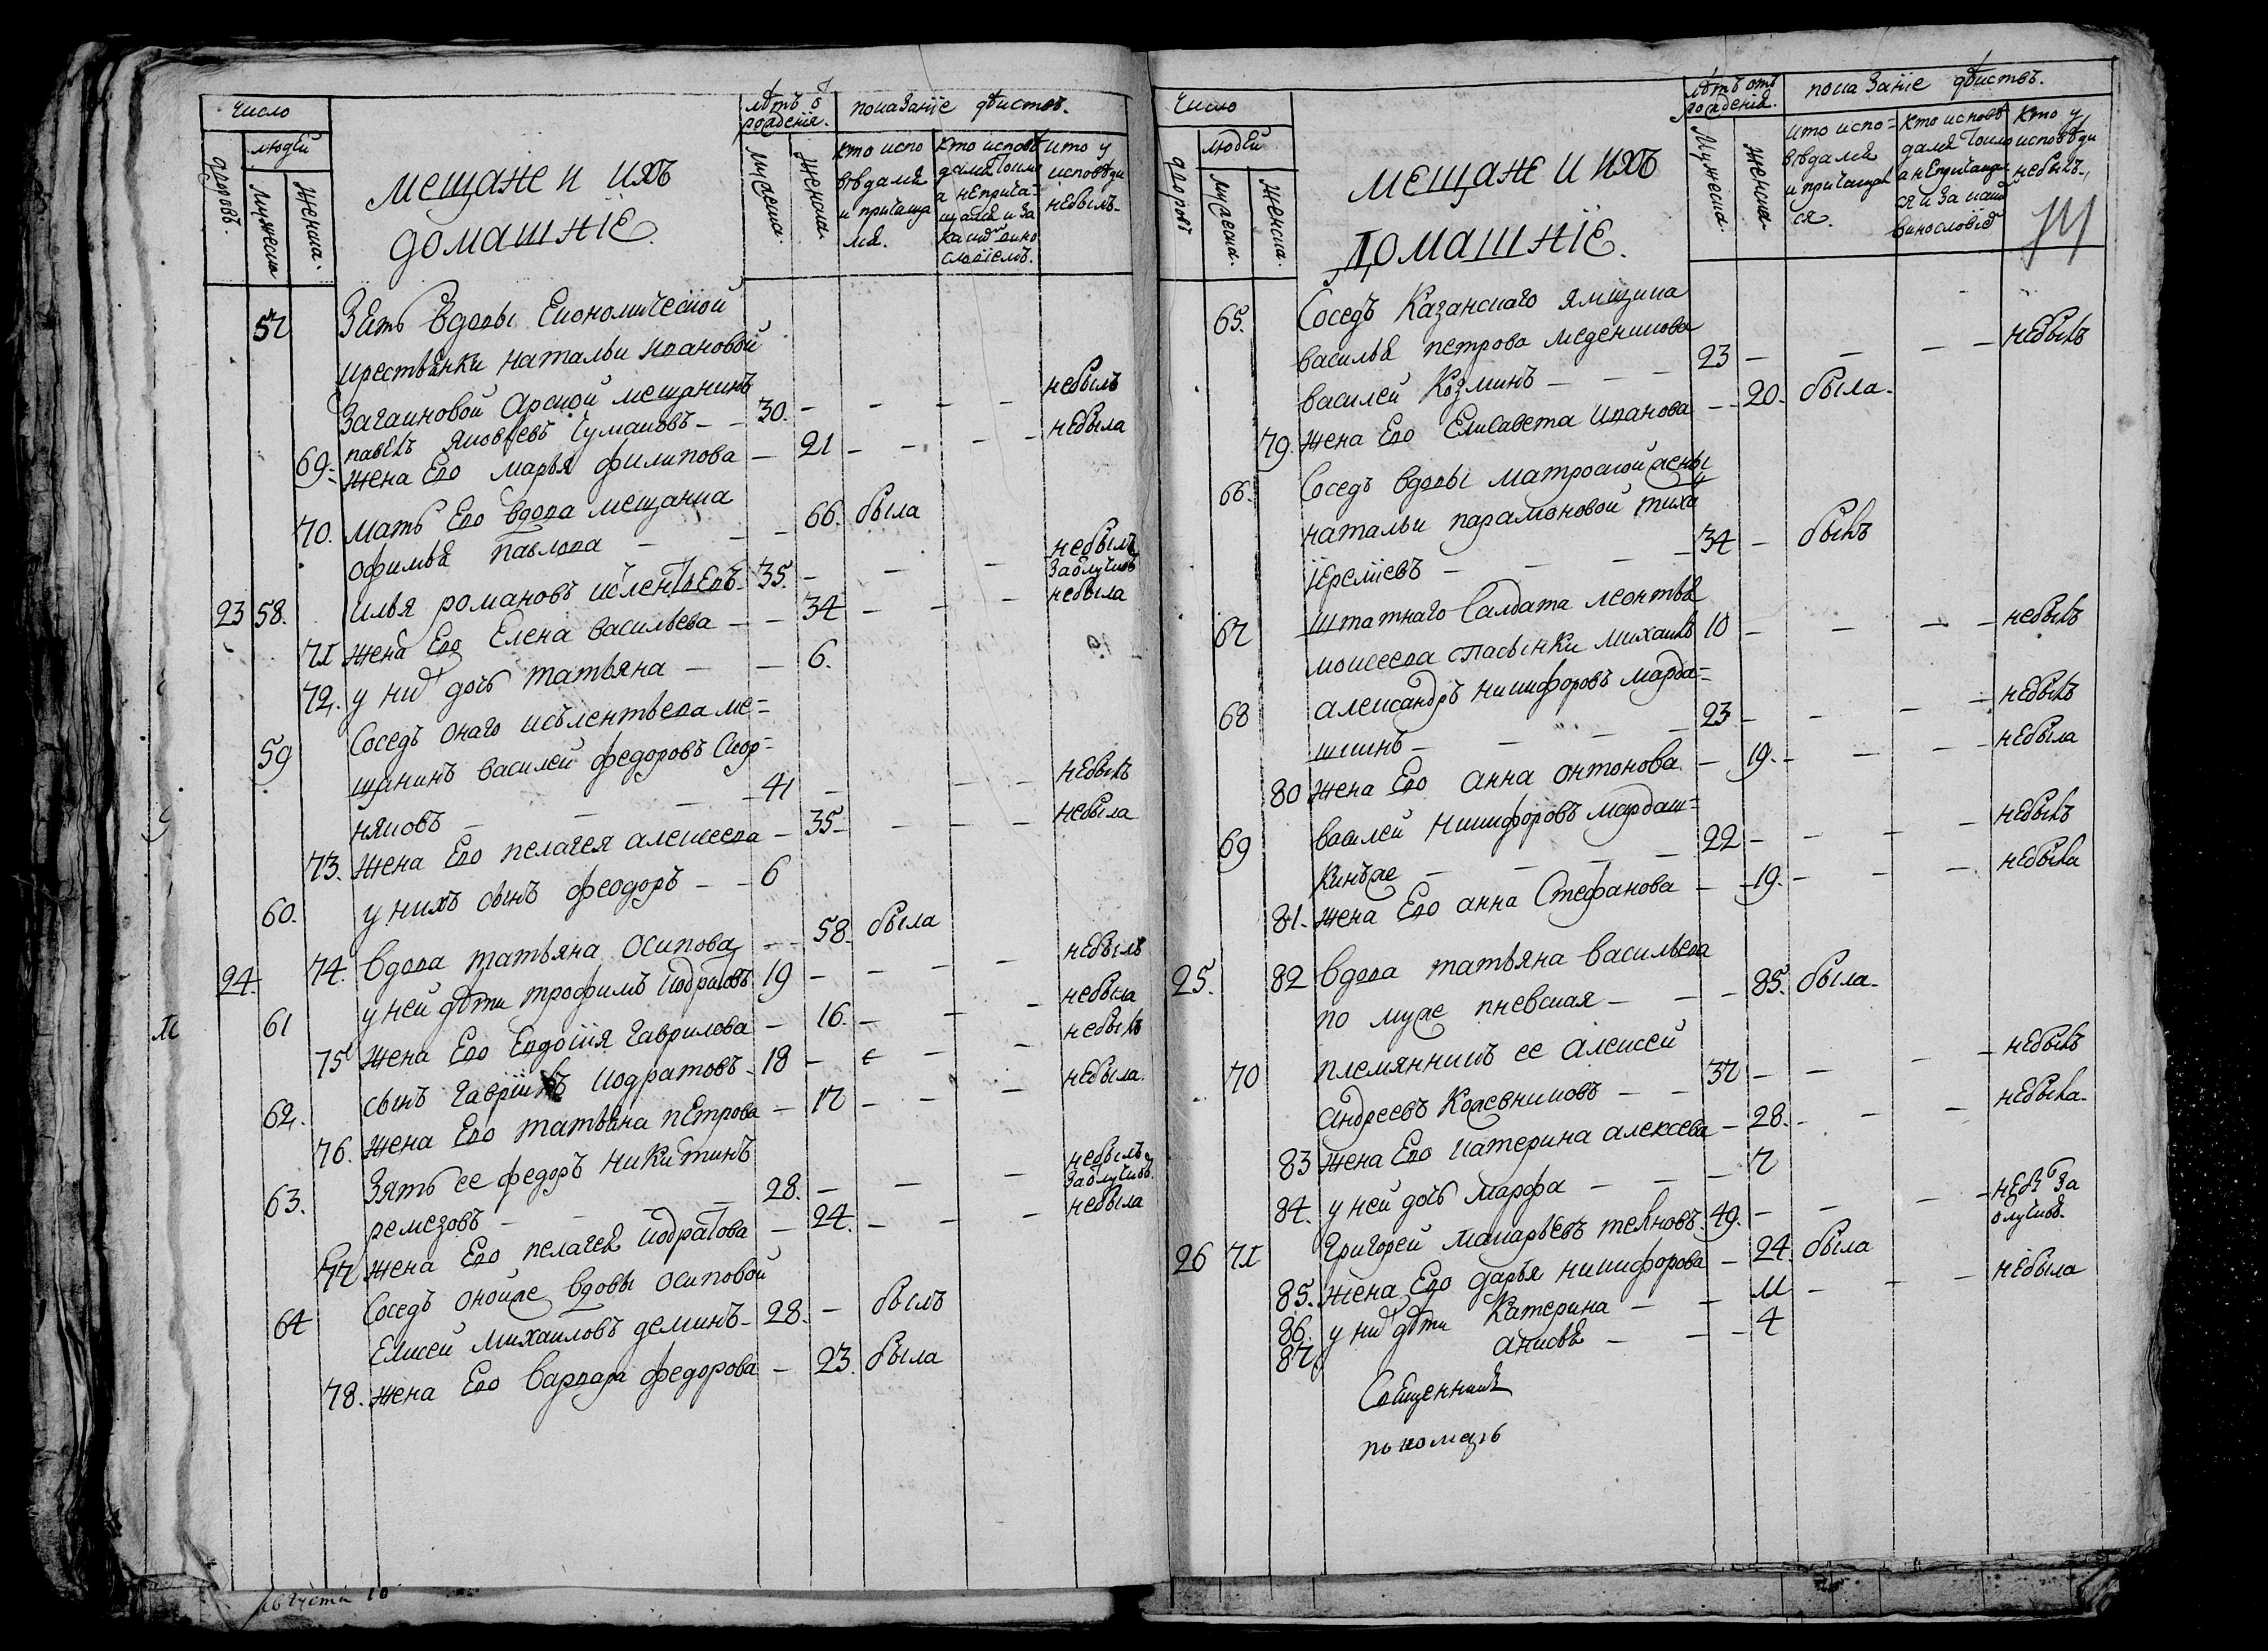 число
людей
дворовъ.
Мужеска
Женска.
мещане и ихъ
домашнїе.
лѣтъ ѿ
рожденїя.
Мужеска.
Женска
показанїе действъ.
кто испо
ведался
и прича
лся.
Кто исповѣ
дался токмо
а неприча-
щался и за
каким вино
словїемъ.
кто у
исповѣди
небылъ.
57 Зять вдовы Економической
крестьянки натальи ивановой
Загаиновой Арской мещанинъ
павелъ яковлевъ Чумаковъ - - 30. - - - - небылъ
69. жена Его марья филипова - 21 - - - - небыла
70. мать Его вдова мещанка
офимья павлова - - - 66. была
23 58. илья романовъ исленьтьевъ 35. - - - небылъ
заѿлучкою
71 жена Его Елена васильева - - 34 - - - небыла
72. у них дочь татьяна - - 6.
59 Соседъ онаго исълентьева ме-
щанинъ василей федоровъ Скор-
няковъ - - - - 41 - - - небылъ
73. жена Его пелагея алексеева - 35 - - - - небыла
60. у нихъ сынъ феодоръ - - 6
24. 74. вдова татьяна Осипова - - 58. была
61 у ней дѣти трофимъ Кодратовъ 19 - - - - небылъ
75 жена Его Евдокия гаврилова - 16. - - - небыла
62. сынъ гаврїилъ Кодратовъ - 18 - - - - небылъ
76. жена Его татьяна пЕтрова - 17 - - - небыла.
63. Зять ее федоръ никитинъ
ремезовъ - - - - 28. - - - небылъ
заѿлучкою.
77 жена Его пелагея Кодратова - 24. - - - небыла
64 Соседъ онойже вдовы осиповой
Елисей михаиловъ деминъ - 28. - былъ
78. жена Его варвара федорова - 23. была
Августа 10
Число
людей
дворовъ
мужеска.
Женска.
мещане и ихъ
домашнїе.
лѣтъ отъ
рожденїя.
Мужеска.
женска
показанїе дѣиствъ.
кто испо-
ведался
и причащал
ся.
Кто исповѣ
дался токмо
а непричащал
ся и за каким
винословїем
Кто у
исповѣди
небылъ.
65. Соседъ Казанскаго ямщика
василья петрова меденикова
василей Козминъ - - - 23 - - - - небылъ
79. жена Его Елисавета Иванова - - 20. была.
66. Соседъ вдовы матроской жены
натальи парамоновой тиха
їеремїевъ - - - - 34 - былъ
67 штатнаго Салдата леонтья
моисеева пасынки михаилъ 10 - - - - небылъ
68 александръ никифоровъ марда-
шкинъ - - - - 23 - - - - небылъ
80 жена Его анна онтонова - 19. - - - - небыла
69 василей никифоровъ мардаш-
кинъже - - - - 22 - - - - небылъ
81. жена Его анна Стефанова - - 19. - - - небыла
25. 82 вдова татьяна васильева
по муже пневская - - - 85. была.
70 племянникъ ее алексей
андреевъ Кожевниковъ - - 37 - - - - небылъ
83 жена Его катерина алексева - 28. - - - небыла.
84. у ней дочь марфа - - - 7
26 71 григорей макарьевъ 49. - - - небъ за
ѿлучкою.
85. жена Его дарья никифорова - 24. была
86. у них дѣти Катерина - - 11 - - - небыла
87. - - 4
Священникъ
пономарь